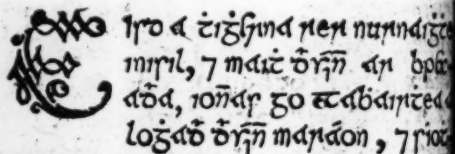 Eisd a ṫiġearna rer nurnaiġṫe
inisil, ⁊ maiṫ ḋúiñ ar bpe
aḋa, ion̄as go ttaḃairtea
loġaḋ ḋúiñ maráon, ⁊ sioṫ